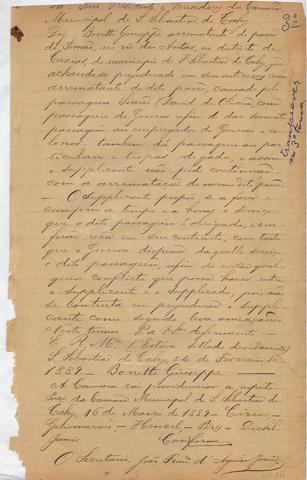 Illmos Snrs Presidente e Vereadores da Camara
Municipal de S. Sebastião do Cahy
Diz Bonetti Giuseppe arrematante do passo
do Simão, no rio das Antas, no districto de
Caxias, do municipio de S. Sebastião do Cahy, que
achando-se prejudicado em seus interesses como
arrematante do dito passo, causado pelo
passageiro Simão David de Oliveira, com
passagens do Governo afim d dar somente
passagem aos empregados do Governo e co-
lonos, tambem dá passagem aos par-
ticulares e tropas de gado, e assim
o supplicante não póde continuar
com a arrematação do mesmo dito passo
O Supplicante propõe-se a fazer e
cumprir a tempo e a horas o serviço
que o dito passageiro é obrigado, con-
forme resa em seu contracto, com tanto
que o Governo dispense daquelle serviço
o dito passageiro, afim de evitar qual-
quer conflicto que possa haver entre
o supplicante e o supplicado, pois, não
se contenta em prejudicar o suppli-
cante como segundo boa ameaças
Neste termos P. a V.Sas deferimento
E. R. Mce (Estava sellado devidamente)
S. Sebastião do Cahy, 26 de Fevereiro de
1889 - Bonetti Giuseppe
A Camara vai providenciar a respeito
Paço da Camara Municipal de S. Sebastião do
Cahy, 16 de Março de 1889 - Cirio -
Guimarães - Henzel - Pry - Diehl
Junior. Conforme
O Secretario, João Franco d' Aguiar Junior
transporte
no 3º termo